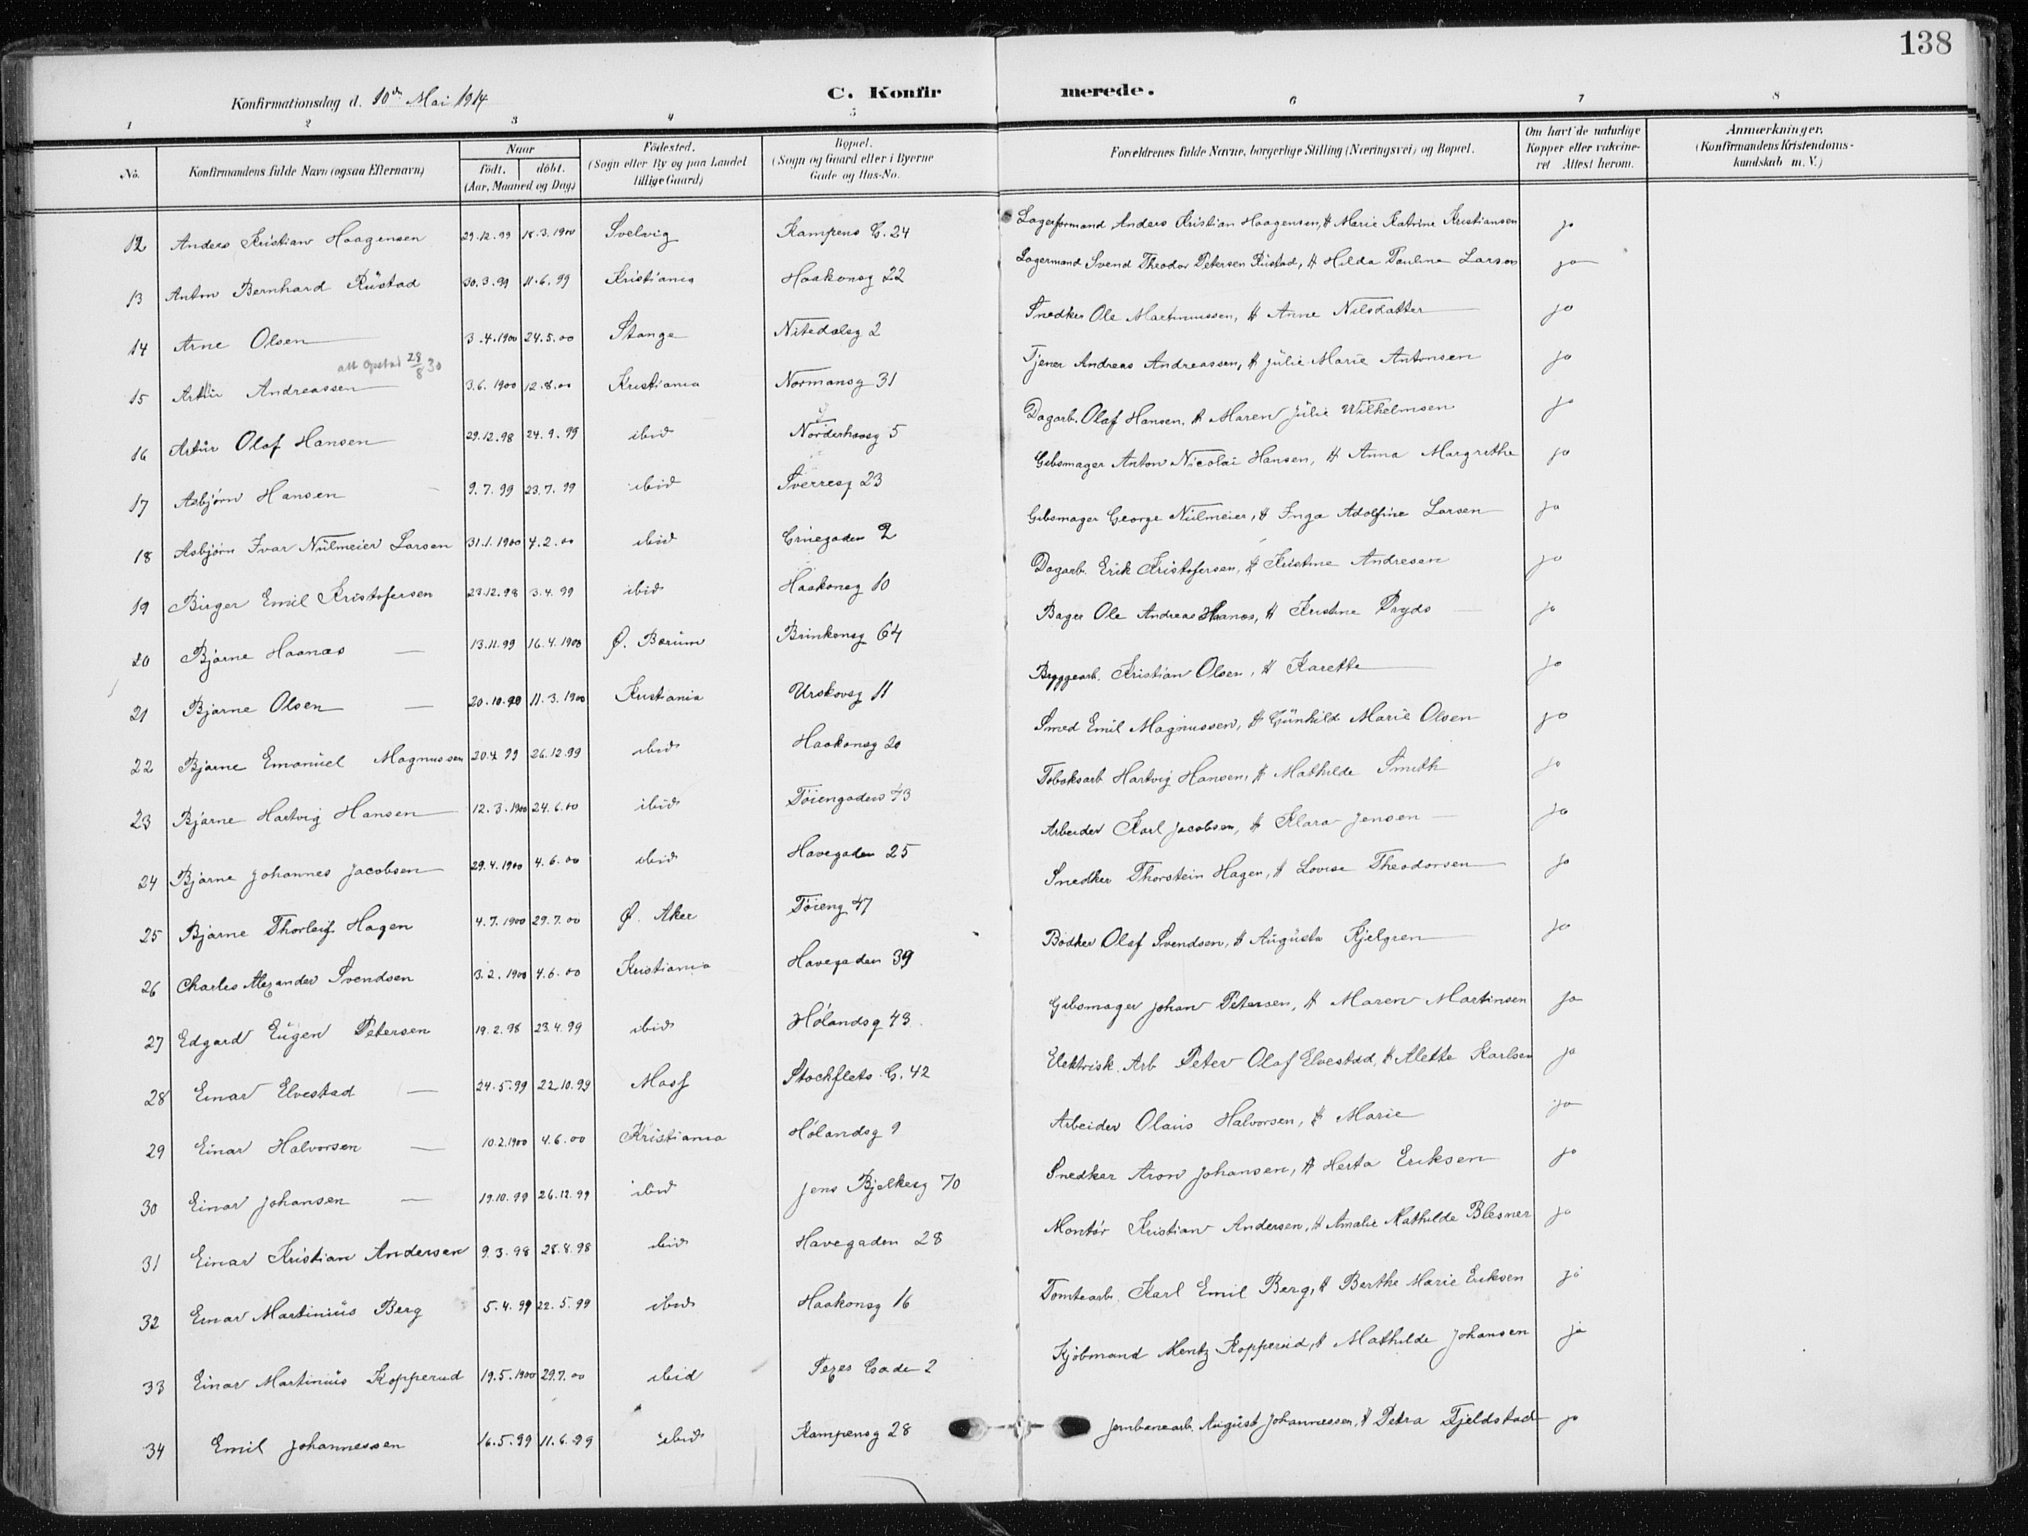 138
Konfirmationsdag d. 10de Mai 1914
C. Konfirmerede.
1 2 3 4 5 6 7 8
No. Konfirmandens fulde Navn (ogsaa Efternavn) Naar født. døbt. (Aar, Maaned og Dag) Fødested. (Sogn eller By og paa Landet tillige Gaard) Bopæl. (Sogn og Gaard eller i Byerne Gade og Hus-No. Forældrenes fulde Navne, borgerlige Stilling (Næringsvei) og Bopæl. Om havt de naturlige Kopper eller vakcineret Attest herom. Anmærkninger. (Konfirmandens Kristendomskundskab m. V.)
12 Anders Kristian Haagensen 29.12.99 18.3.1900 Svelvig Kampens G. 24 Lagerformand Anders Kristian Haagensen, H Marie Katrine Kristiansen ja
13 Anton Bernhard Rüstad 30.3.99 11.6.99 Kristiania Haakonsg 22 Lagermand Svend Theodor Petersen Rüstad, H Hilda Pauline Larson ja
14 Arne Olsen 3.4.1900 24.5.00 Stange Nitedalsg 2 Snedker Ole Martinussen, H Anne Nilsdatter ja
att Opstad 28/8 30
15 Artur Andreassen 3.6.1900 12.8.00 Kristiania Normansg 31 Tjener Andreas Andreassen, H Julie Marie Antonsen ja
16 Artur Olaf Hansen 29.12.98 24.9.99 ibid Norderhovsg 5 Dagarb. Olaf Hansen, H Maren Julie Wilhelmsen ja
17 Asbjørn Hansen 9.7.99 23.7.99 ibid Sverresg 23 Gibsmager Anton Nicolai Hansen, H Anna Margrethe ja
18 Asbjørn Ivar Nülmeier Larsen 31.1.1900 4.2.00 ibid Grüegaden 2 Gibsmager George Nülmeier, H Inga Adolfine Larsen ja
19 Birger Emil Kristofersen 23.12.98 3.4.99 ibid Haakonsg 10 Dagarb. Erik Kristofersen, H Kristine Andresen ja
20 Bjarne Haanæs 13.11.99 16.4.1900 Ø. Bærum Brinkensg 64 Bager Ole Andreas Haanæs, H Kristine Pryds ja
21 Bjarne Olsen 20.10.99 11.3.1900 Kristiania Urskovsg 11 Byggearb. Kristian Olsen, H Karette ja
22 Bjarne Emanuel Magnussen 20.4.99 26.12.99 ibid Haakonsg 20 Smed Emil Magnussen, H Günhild Marie Olsen ja
23 Bjarne Hartvig Hansen 12.3.1900 24.6.00 ibid Tøiengaden 43 Tobaksarb Hartvig Hansen, H Mathilde Smith ja
24 Bjarne Johannes Jacobsen 29.4.1900 4.6.00 ibid Havegaden 25 Arbeider Karl Jacobsen, H Klara Jensen ja
25 Bjarne Thorleif Hagen 4.7.1900 29.7.00 Ø. Aker Tøieng 47 Snedker Thorstein Hagen, H Lovise Theodorsen ja
26 Charles Alexander Svendsen 3.2.1900 4.6.00 Kristiania Havegaden 39 Bødker Olaf Svendsen, H Augusta Kjelgren ja
27 Edgard Eugen Petersen 19.2.98 23.4.99 ibid Hølandsg 43 Gibsmager Johan Petersen, H Maren Martinsen ja
28 Einar Elvestad 24.5.99 22.10.99 Moss Stockflets G. 42 Elektrisk. Arb Peter Olaf Elvestad, H Alette Karlsen ja
29 Einar Halvorsen 10.2.1900 4.6.00 Kristiania Hølandsg 9 Arbeider Olaus Halvorsen, H Marie ja
30 Einar Johansen 19.10.99 26.12.99 ibid Jens Bjelkesg 70 Snedker Aron Johansen, H Herta Eriksen ja
31 Einar Kristian Andersen 9.3.98 28.8.98 ibid Havegaden 28 Montør Kristian Andersen, H Amalie Mathilde Blesner ja
32 Einar Martinius Berg 5.4.99 22.5.99 ibid Haakonsg 16 Tomtearb. Karl Emil Berg, H Berthe Marie Eriksen ja
33 Einar Martinius Kopperud 19.5.1900 29.7.00 ibid Gade 2 Kjøbmand Mentz Kopperud, H Mathilde Johansen ja
34 Emil Johannessen 16.5.99 11.6.99 ibid Kampensg 28 Jernbanearb. August Johannessen, H Petra Fjeldstad ja